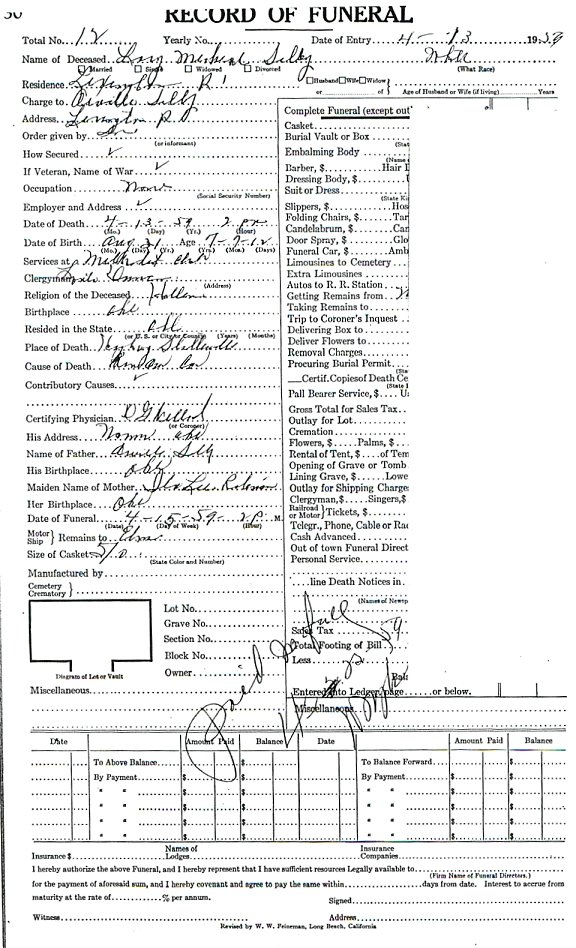 RECORD OF FUNERAL
Total No. 12 Yearly No. Date of Entry 4-13 1959
Name of Deceased Michael Selby White
Married Single Widowed Divorced (What Race)
Residence Lexington R 1 Husband Wife Widow
or of Age of Husband or Wife (if living) Years
Charge to Orville Selby
Address Lexington
Order given by
(or informant)
How Secured ✓
If Veteran, Name of War ✓
Occupation None
(Social Security Number)
Employer and Address ✓
Date of Death 4-13-59 2 pm
(Mo.) (Day) (Yr.) (Hour)
Date of Birth Aug 21 Age 7-7-12
(Mo.) (Day) (Yr.) (Yrs.) (Mos.) (Days)
Services at Methodist
Clergyman
(Address)
Religion of the Deceased
Birthplace Okl
Resided in the State Okl
(or U. S. or City or County) (Years) (Months)
Place of Death
Cause of Death
Contributory Causes ✓
Certifying Physician
(or Coroner)
His Address Norman Okl
Name of Father Orville Selby
His Birthplace Okl
Maiden Name of Mother Lee Robinson
Her Birthplace Okl
Date of Funeral 4-15-59 2 P. M.
(Date) (Day of Week) (Hour)
Motor Ship } Remains to
Size of Casket 5/0
(State Color and Number)
Manufactured by
Cemetery Crematory }
Lot No.
Grave No.
Section No.
Block No.
Owner
Diagram of Lot or Vault
Miscellaneous
Complete Funeral (except out
Casket
Burial Vault or Box
(Sta
Embalming Body
(Name
Barber, $ Hair
Dressing Body, $
Suit or Dress
(State Ki
Slippers, $ Hos
Folding Chairs, $ Tar
Candelabrum, $ Can
Door Spray, $ Glo
Funeral Car, $ Amb
Limousines to Cemetery
Extra Limousines
Autos to R. R. Station
Getting Remains from
Taking Remains to
Trip to Coroner's Inquest
Delivering Box to
Deliver Flowers to
Removal Charges
Procuring Burial Permit
(Sta
Certif. Copies of Death Ce
(State
Pall Bearer Service, $
Gross Total for Sales Tax
Outlay for Lot
Cremation
Flowers, $ Palms, $
Rental of Tent, $ of Tem
Opening of Grave or Tomb
Lining Grave, $ Lowe
Outlay for Shipping Charge
Clergyman, $ Singers, $
Railroad or Motor } Tickets, $
Telegr., Phone, Cable or Rad
Cash Advanced
Out of town Funeral Direct
Personal Service
line Death Notices in
(Names of Newsp
Sales Tax
Total Footing of Bill
Less
Bal
Entered into Ledger, page or below.
Miscellaneous
Paid in full
Date Amount Paid Balance Date Amount Paid Balance
To Above Balance $ $ To Balance Forward $ $
By Payment $ $ By Payment $ $
" " $ $ " " $ $
" " $ $ " " $ $
" " $ $ " " $ $
" " $ $ " " $ $
Insurance $ Names of Lodges Insurance Companies
I hereby authorize the above Funeral, and I hereby represent that I have sufficient resources Legally available to
(Firm Name of Funeral Directors.)
for the payment of aforesaid sum, and I hereby covenant and agree to pay the same within days from date. Interest to accrue from
maturity at the rate of % per annum. Signed
Witness Address
Revised by W. W. Feineman, Long Beach, California